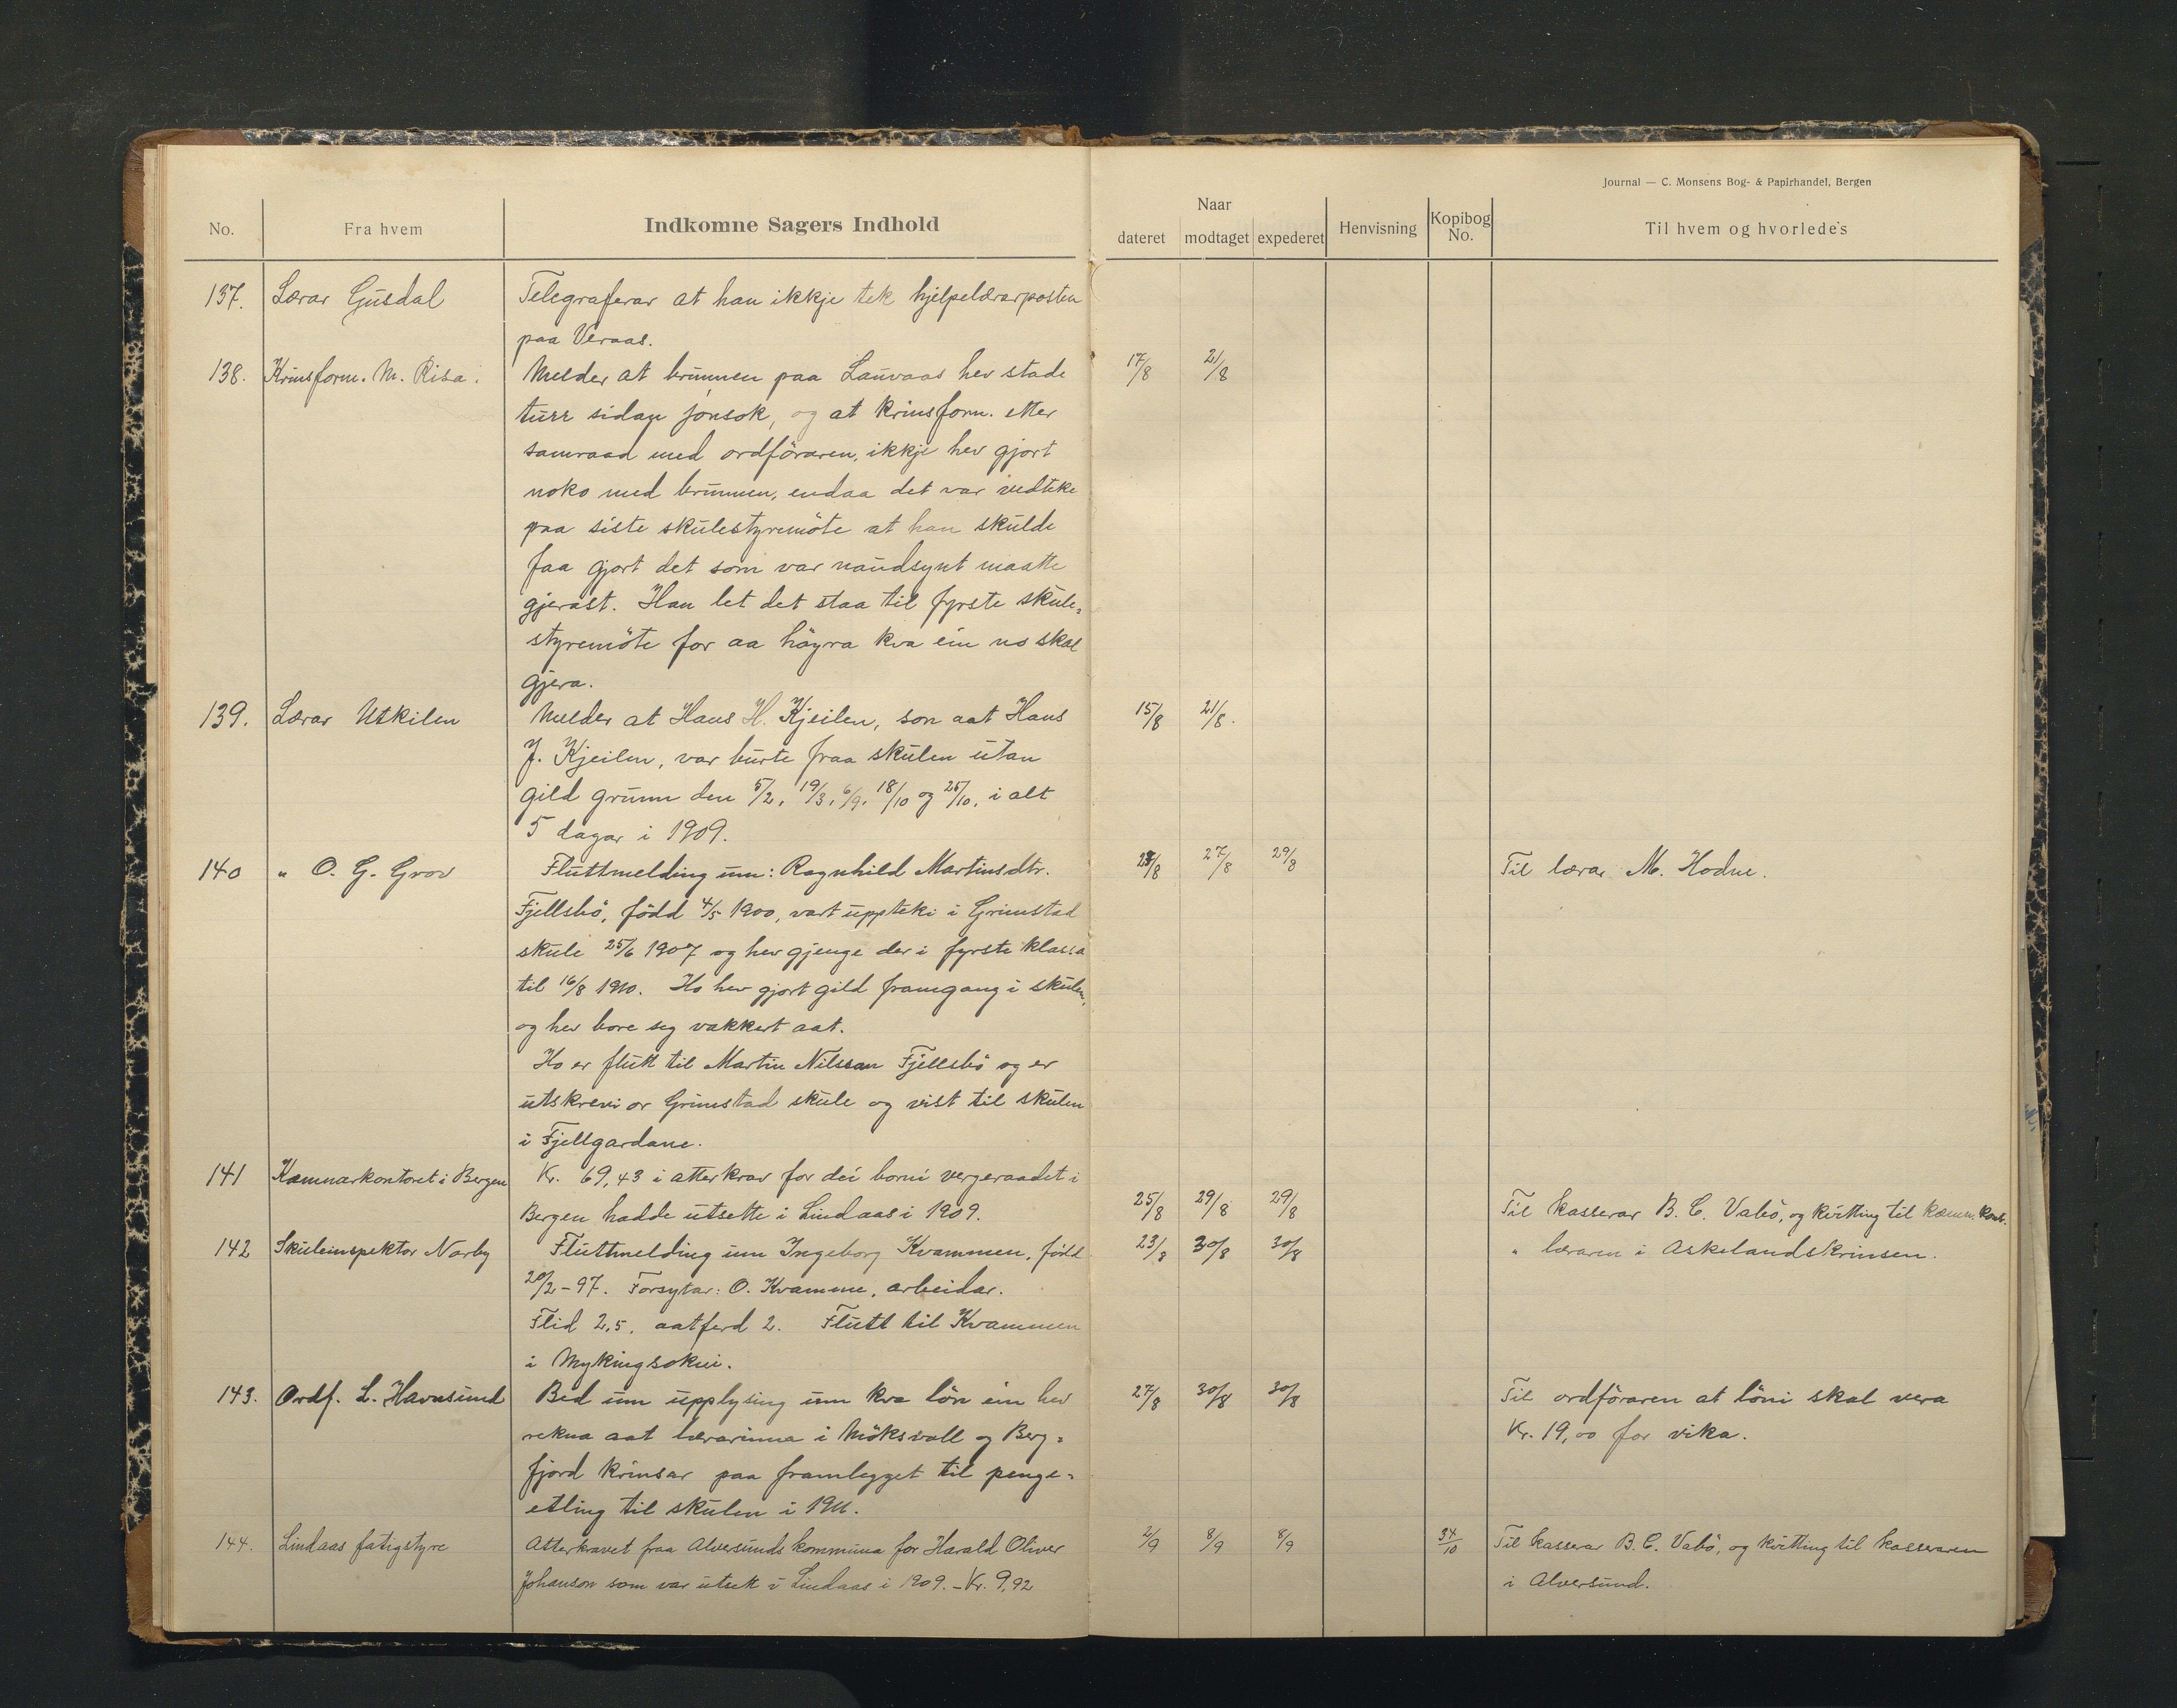 Journal — C. Monsens Bog- & Papirhandel, Bergen
No. Fra hvem Indkomne Sagers Indhold Naar dateret modtaget expederet Henvisning Kopibog No. Til hvem og hvorledes
137. Lærar Gusdal Telegraferar at han ikkje tek hjelpelærarposten
paa Veraas.
138. Krinsform. M. Risa. Melder at brunnen paa Lauvaas hev stade 17/8 21/8
turr sidan jonsok, og at krinsform. etter
samraad med ordföraren, ikkje hev gjort
noko med brunnen, endaa det var vedteke
paa siste skulestyremöte at han skulde
faa gjort det som var naudsynt maatte
gjerast. Han let det staa til fyrste skule-
styremöte for aa höyra kva ein no skal
gjera.
139. Lærar Utkilen Melder at Hans H. Kjeilen, son aat Hans 15/8 21/8.
J. Kjeilen, var burte fraa skulen utan
gild grunn den 5/2, 19/3, 6/9, 18/10 og 25/10, i alt
5 dagar i 1909.
140 " O. G. Grov Fluttmelding um: Ragnhild Martinsdtr. 27/8 29/8 Til lærar M. Hodne.
Fjellsbö, född 4/5 1900, vart uppteki i Grimstad
skule 25/6 1907 og hev gjenge der i fyrste klassa
til 16/8 1910. Ho hev gjort gild framgang i skulen,
og hev bore seg vakkert aat.
Ho er flutt til Martin Nilssan Fjellsbö og er
utskrevi or Grimstad skule og vist til skulen
i Fjellgardane.
141 Kæmnarkontoret i Bergen Kr. 69,43 i atterkrav for dei borni vergeraadet i
Bergen hadde utsette i Lindaas i 1909. 25/8 29/8 29/8 Til kasserar B. C. Vabö, og kvitting til kæmn. kont.
142 Skuleinspektor Nörby Fluttmelding um Ingeborg Kvammen, född 23/8 30/8 30/8 " læraren i Askelandskrinsen.
20/2-97. Forsytar: O. Kvamme, arbeidar.
Flid 2,5, aatferd 2. Flutt til Kvammen
i Mykingsokni.
143. Ordf. L. Havnsund Bed um upplysing um kva lön ein hev 27/8 30/8 30/8 Til ordföraren at löni skal vera
rekna aat lærarinna i Möksvoll og Berg- Kr. 19,00 for vika.
fjord krinsar paa framlegget til penge-
etling til skulen i 1911.
144. Lindaas fatigstyre Atterkravet fraa Alversunds kommuna for Harald Oliver 2/9 8/9 8/9 34/10 Til kasserar B. C. Vabö, og kvitting til kasseraren
Johanson som var utsett i Lindaas i 1909. - Kr. 9,92 i Alversund.